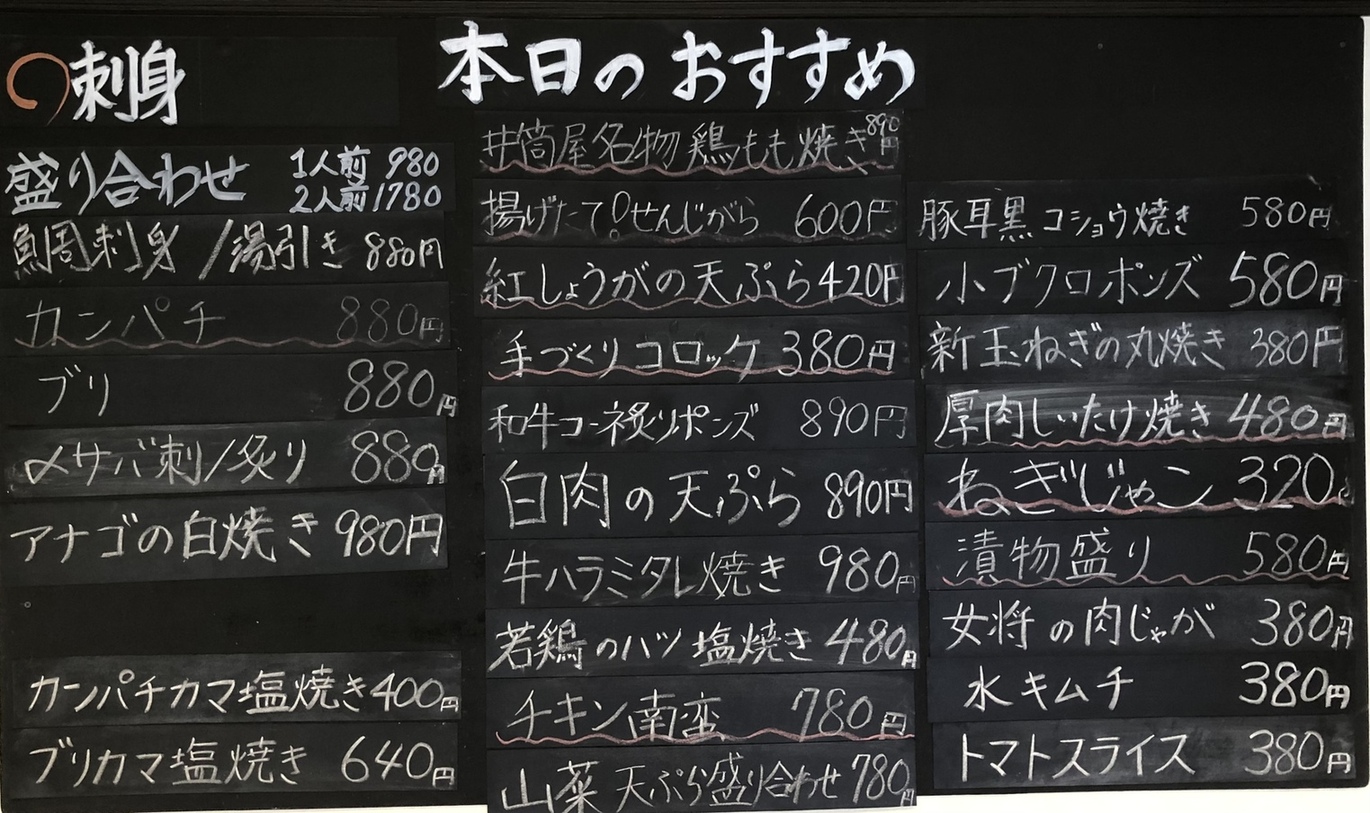 刺身
盛り合わせ 1人前 980
2人前 1780
鯛刺身/湯引き 880円
カンパチ 880円
ブリ 880円
〆サバ刺/炙り 880円
アナゴの白焼き 980円
カンパチカマ塩焼き 400円
ブリカマ塩焼き 640円
本日のおすすめ
井筒屋名物 鶏もも焼き 890円
揚げたて!せんじがら 600円
紅しょうがの天ぷら 420円
手づくりコロッケ 380円
和牛コーネ炙りポンズ 890円
白肉の天ぷら 890円
牛ハラミタレ焼き 980円
若鶏のハツ塩焼き 480円
チキン南蛮 780円
山菜天ぷら盛り合わせ 780円
豚耳黒コショウ焼き 580円
小ブクロポンズ 580円
新玉ねぎの丸焼き 380円
厚肉しいたけ焼き 480円
ねぎじゃこ 320円
漬物盛り 580円
女将の肉じゃが 380円
水キムチ 380円
トマトスライス 380円